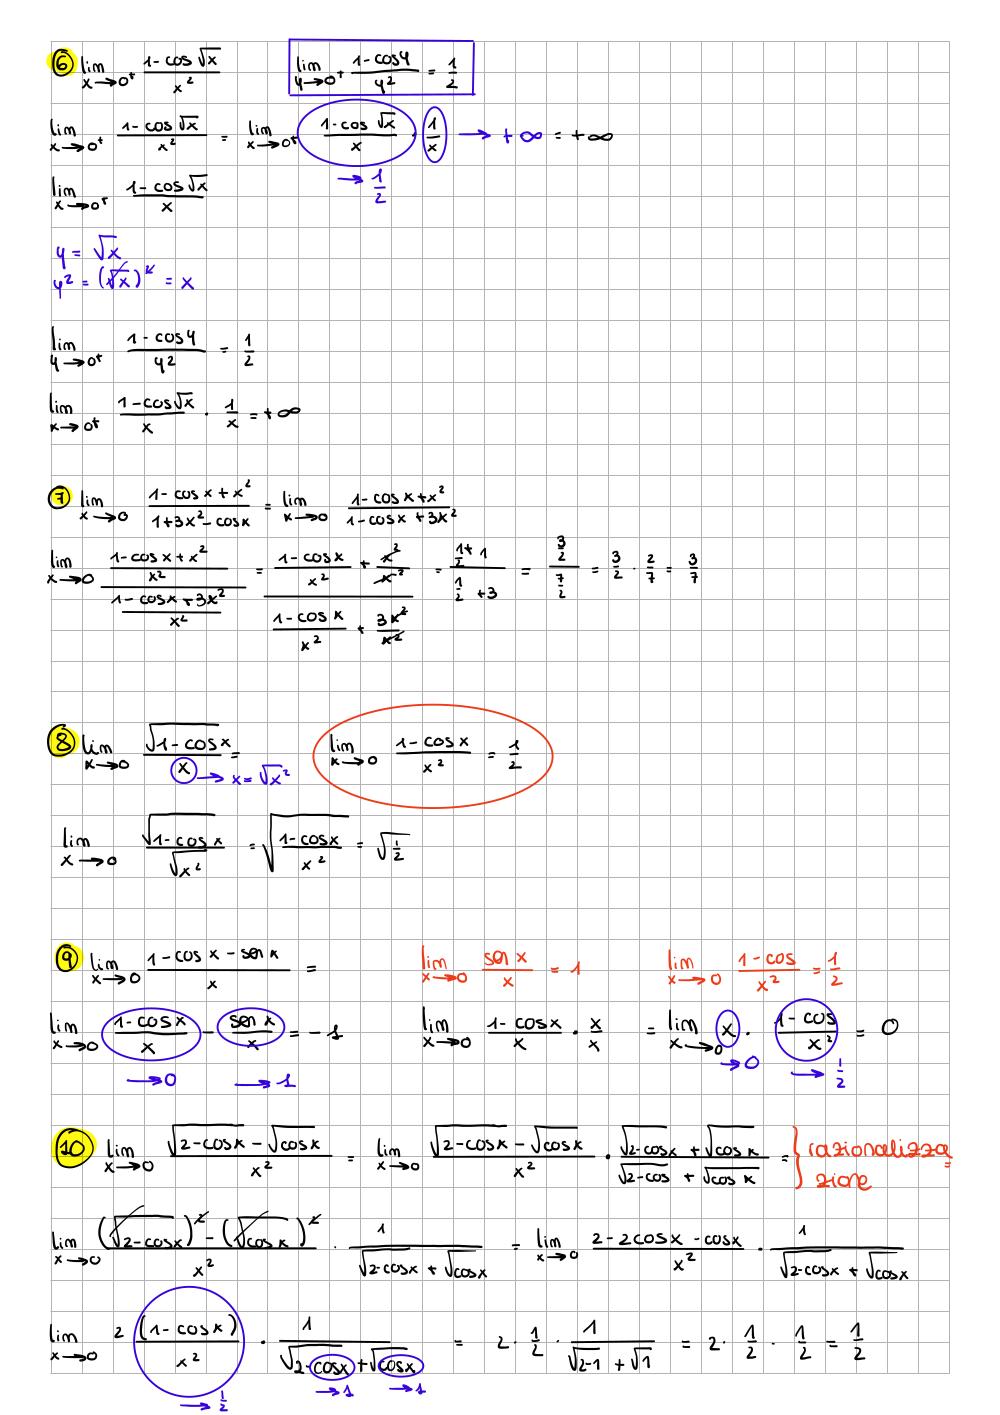 6 lim x→0⁺ (1-cos√x)/x²    lim y→0⁺ (1-cosy)/y² = 1/2
lim x→0⁺ (1-cos√x)/x² = lim x→0⁺ (1-cos√x)/x · 1/x → +∞ = +∞
→ 1/2
lim x→0⁺ (1-cos√x)/x
y = √x
y² = (√x)² = x
lim y→0⁺ (1-cosy)/y² = 1/2
lim x→0⁺ (1-cos√x)/x · 1/x = +∞
7 lim x→0 (1-cosx+x²)/(1+3x²-cosx) = lim x→0 (1-cosx+x²)/(1-cosx+3x²)
lim x→0 ((1-cosx+x²)/x²)/((1-cosx+3x²)/x²) = ((1-cosx)/x² + x²/x²)/((1-cosx)/x² + 3x²/x²) = (1/2+1)/(1/2+3) = (3/2)/(7/2) = 3/2 · 2/7 = 3/7
8 lim x→0 √(1-cosx)/x =    lim x→0 (1-cosx)/x² = 1/2
→ x=√x²
lim x→0 √(1-cosx)/√x² = √((1-cosx)/x²) = √(1/2)
9 lim x→0 (1-cosx-senx)/x =    lim x→0 senx/x = 1    lim x→0 (1-cos)/x² = 1/2
lim x→0 (1-cosx)/x - senx/x = -1    lim x→0 (1-cosx)/x · x/x = lim x→0 x · (1-cos)/x² = 0
→0    →1    →0    → 1/2
10 lim x→0 (√(2-cosx) - √cosx)/x² = lim x→0 (√(2-cosx) - √cosx)/x² · (√(2-cosx) + √cosx)/(√(2-cos) + √cosx) = } razionalizza=
zione
lim x→0 ((√(2-cosx))² - (√cosx)²)/x² · 1/(√(2-cosx) + √cosx) = lim x→0 (2-2cosx-cosx)/x² · 1/(√(2-cosx) + √cosx)
lim x→0 2 (1-cosx)/x² · 1/(√(2-cosx)+√cosx) = 2 · 1/2 · 1/(√(2-1) + √1) = 2 · 1/2 · 1/2 = 1/2
→ 1/2    →1    →1